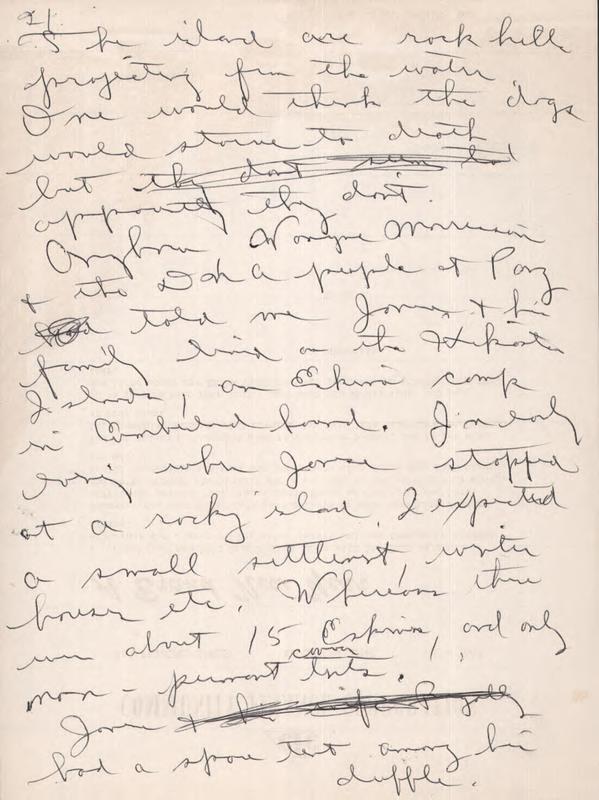 2/
The island are rock hills
projecting from the water
One would think the dogs
would starve to death
but they dont seem to
apparently they don't.
Anyhow Wayne Morrison
& the people at Pang
told me Jonas & his
family lived on the
Islands, an Eskimo camp
in Cumberland Sound. In early
evening when Jonas stopped
at a rocky island I expected
a small settlement, winter
houses etc. Whereas there
were about 15 Eskimos, and only
canvas
non-permanent tents.
Jonas & his wife
had a spare tent among his
duffle.